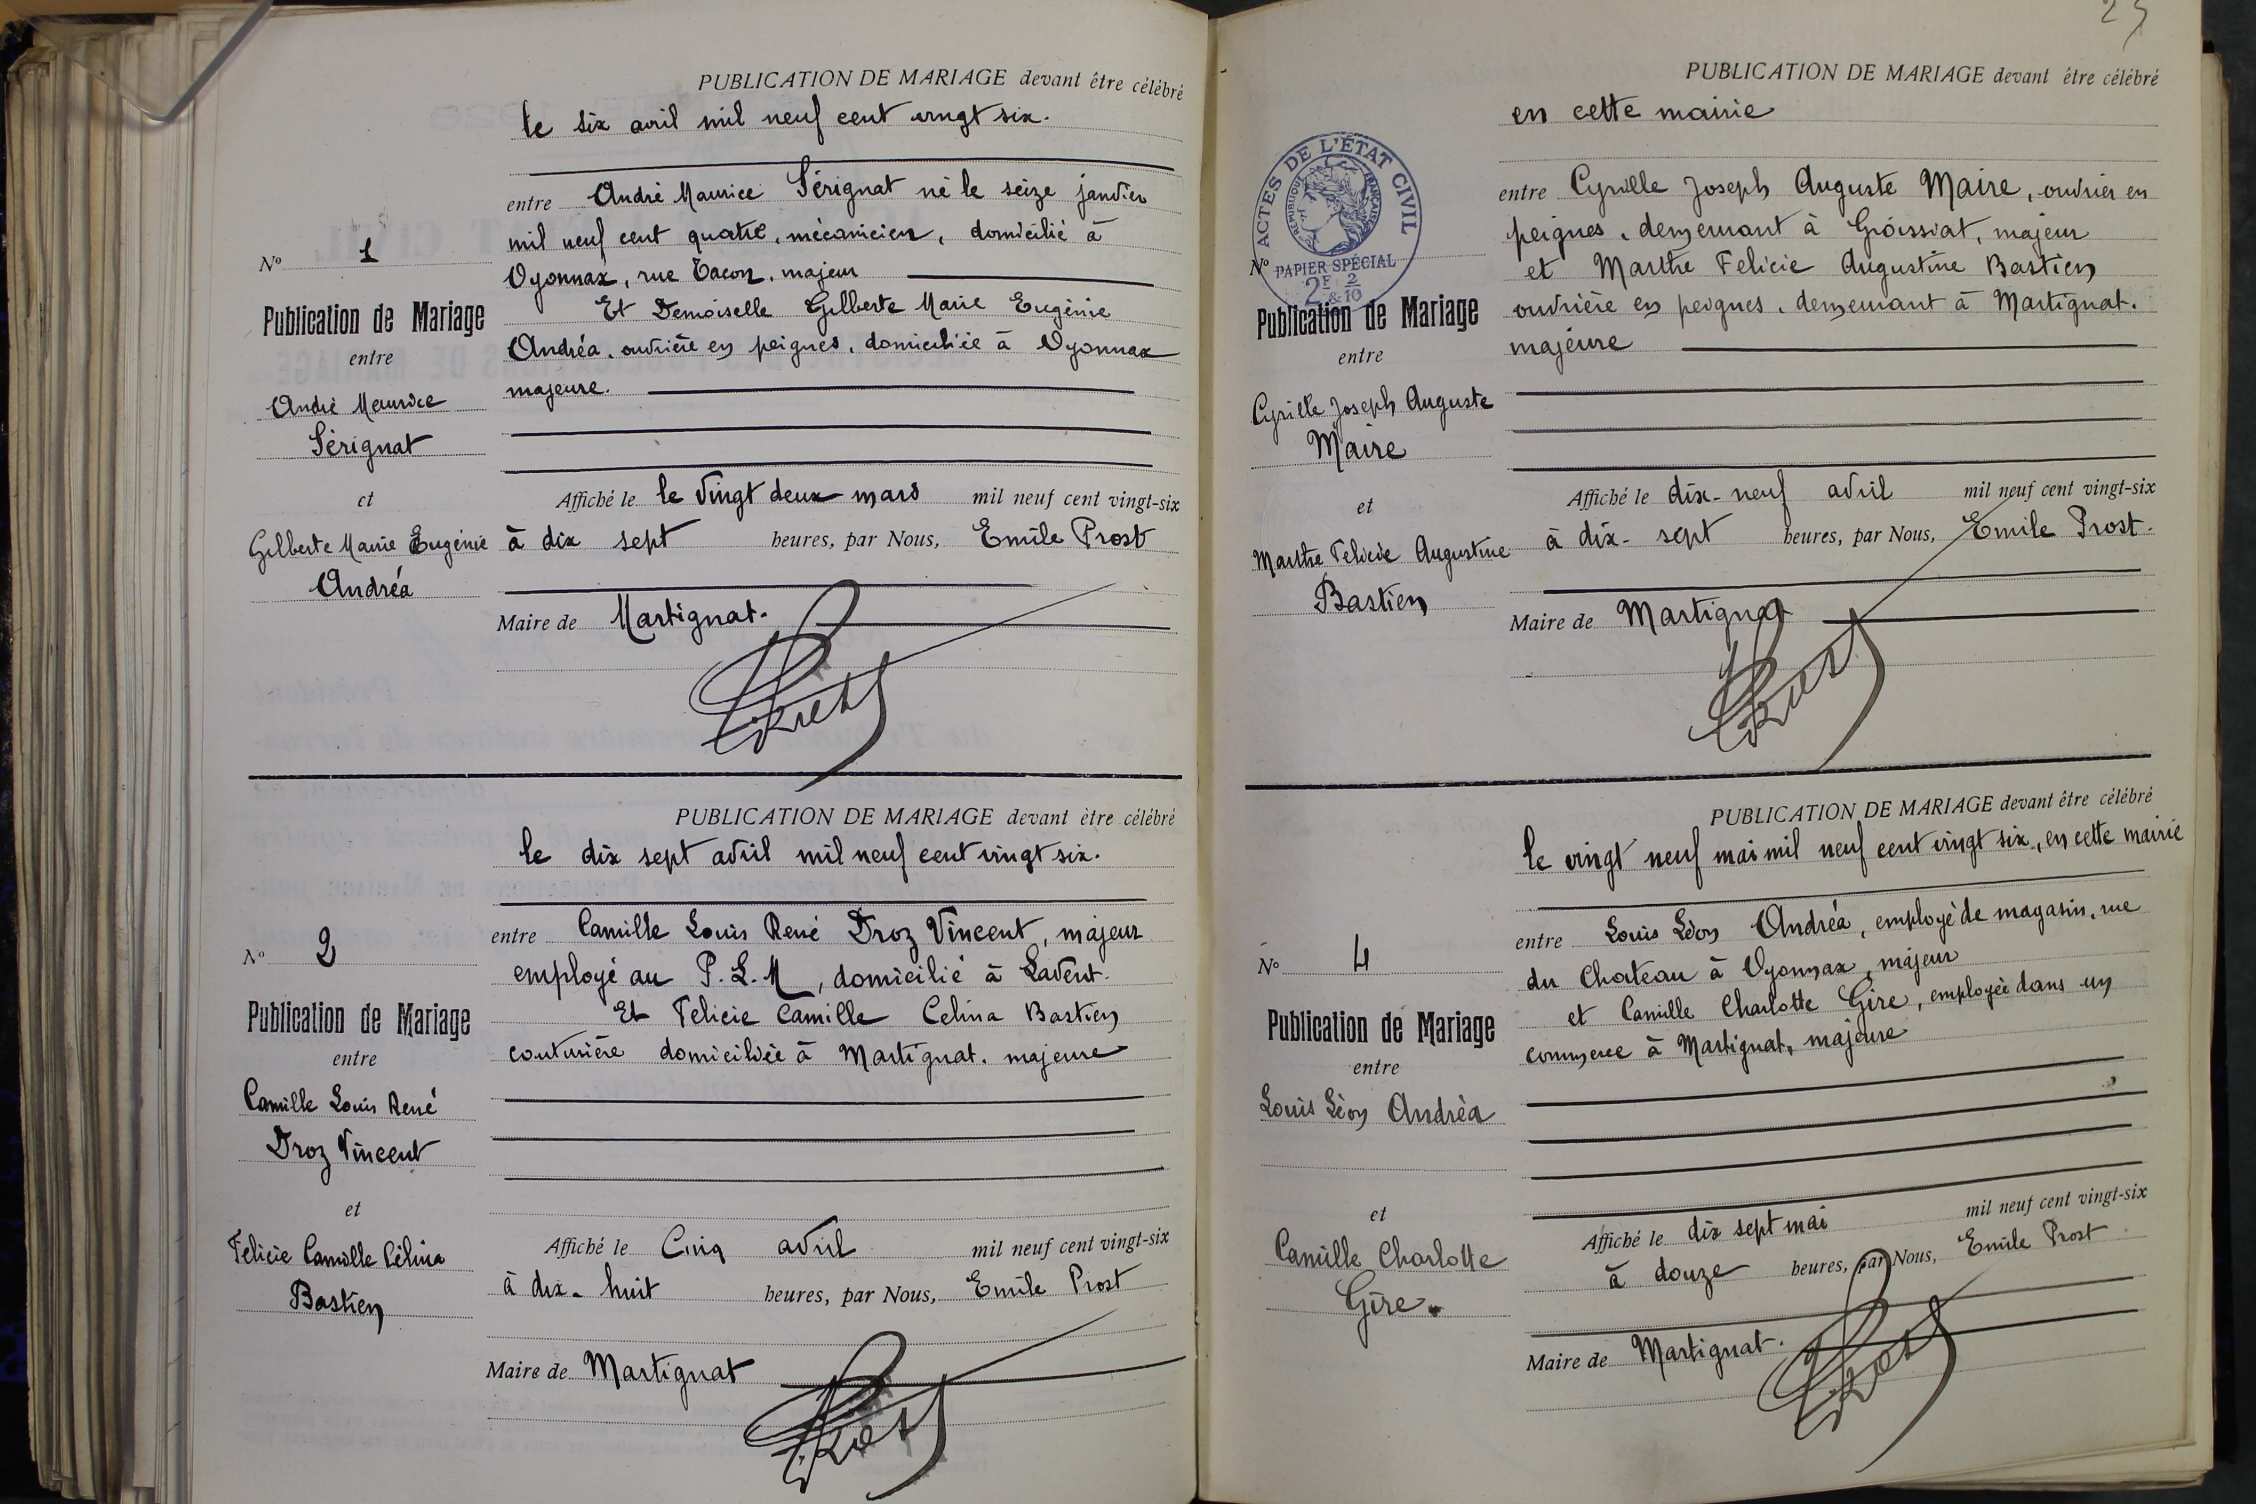 PUBLICATION DE MARIAGE devant être célébré
le six avril mil neuf cent vingt six.
entre André Maurice Sérignat né le seize janvier
mil neuf cent quatre, mécanicien, domicilié à
Oyonnax, rue Tacon, majeur
Et Demoiselle Gilberte Marie Eugénie
Andréa, ouvrière en peignes, domiciliée à Oyonnax
majeure.
Affiché le le vingt deux mars mil neuf cent vingt-six
à dix sept heures, par Nous, Emile Prost
Maire de Martignat.
Prost
N° 1
Publication de Mariage
entre
André Maurice
Sérignat
et
Gilberte Marie Eugénie
Andréa
PUBLICATION DE MARIAGE devant être célébré
le dix sept avril mil neuf cent vingt six.
entre Camille Louis René Droz Vincent, majeur
employé au P.L.M, domicilié à Lavent.
Et Felicie Camille Celina Bastien
couturière domiciliée à Martignat. majeure
Affiché le Cinq avril mil neuf cent vingt-six
à dix-huit heures, par Nous, Emile Prost
Maire de Martignat
Prost
N° 2
Publication de Mariage
entre
Camille Louis René
Droz Vincent
et
Felicie Camille Célina
Bastien
25
PUBLICATION DE MARIAGE devant être célébré
en cette mairie
entre Cyrille Joseph Auguste Maire, ouvrier en
peignes, demeurant à Groissiat, majeur
et Marthe Felicie Augustine Bastien
ouvrière en peignes, demeurant à Martignat.
majeure
Affiché le dix-neuf avril mil neuf cent vingt-six
à dix-sept heures, par Nous, Emile Prost.
Maire de Martignat
Prost
ACTES DE L'ÉTAT CIVIL
RÉPUBLIQUE FRANÇAISE
PAPIER SPÉCIAL
2F & 2/10
N°
Publication de Mariage
entre
Cyrille Joseph Auguste
Maire
et
Marthe Felicie Augustine
Bastien
PUBLICATION DE MARIAGE devant être célébré
le vingt neuf mai mil neuf cent vingt six, en cette mairie
entre Louis Léon Andréa, employé de magasin, rue
du Chateau à Oyonnax, majeur
et Camille Charlotte Gire, employée dans un
commerce à Martignat, majeure
Affiché le dix sept mai mil neuf cent vingt-six
à douze heures, par Nous, Emile Prost
Maire de Martignat.
Prost
N° 4
Publication de Mariage
entre
Louis Léon Andréa
et
Camille Charlotte
Gire.